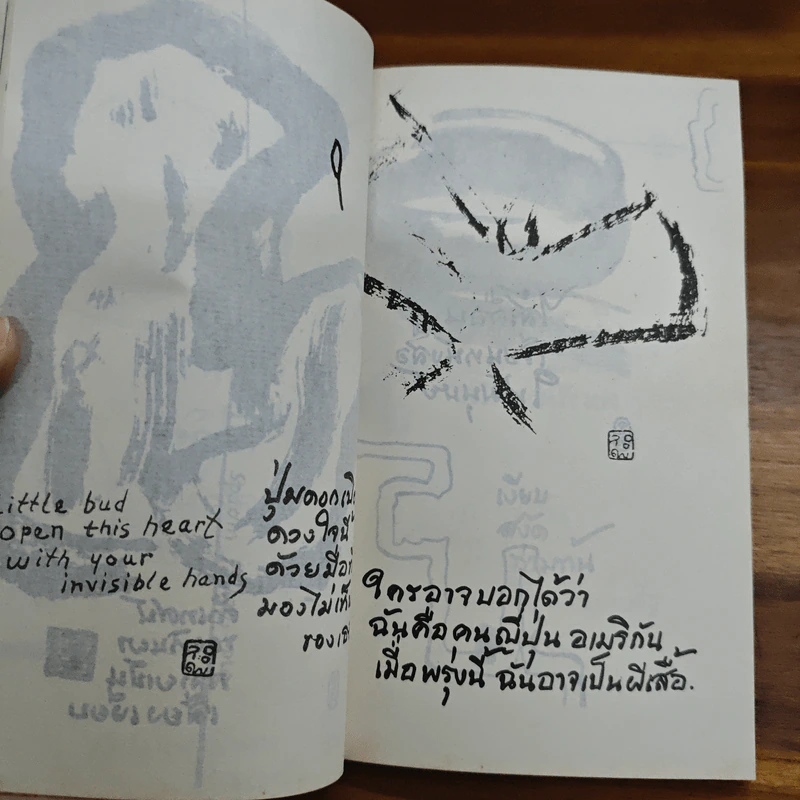 Little bud
open this heart
with your
invisible hands
ปุ่มดอก
ดวงใจนี้
ด้วยมือ
มองไม่เห็น
ของ
ใครอาจบอกได้ว่า
ฉันคือคนญี่ปุ่น อเมริกัน
เมื่อพรุ่งนี้ ฉันอาจเป็นผีเสื้อ.